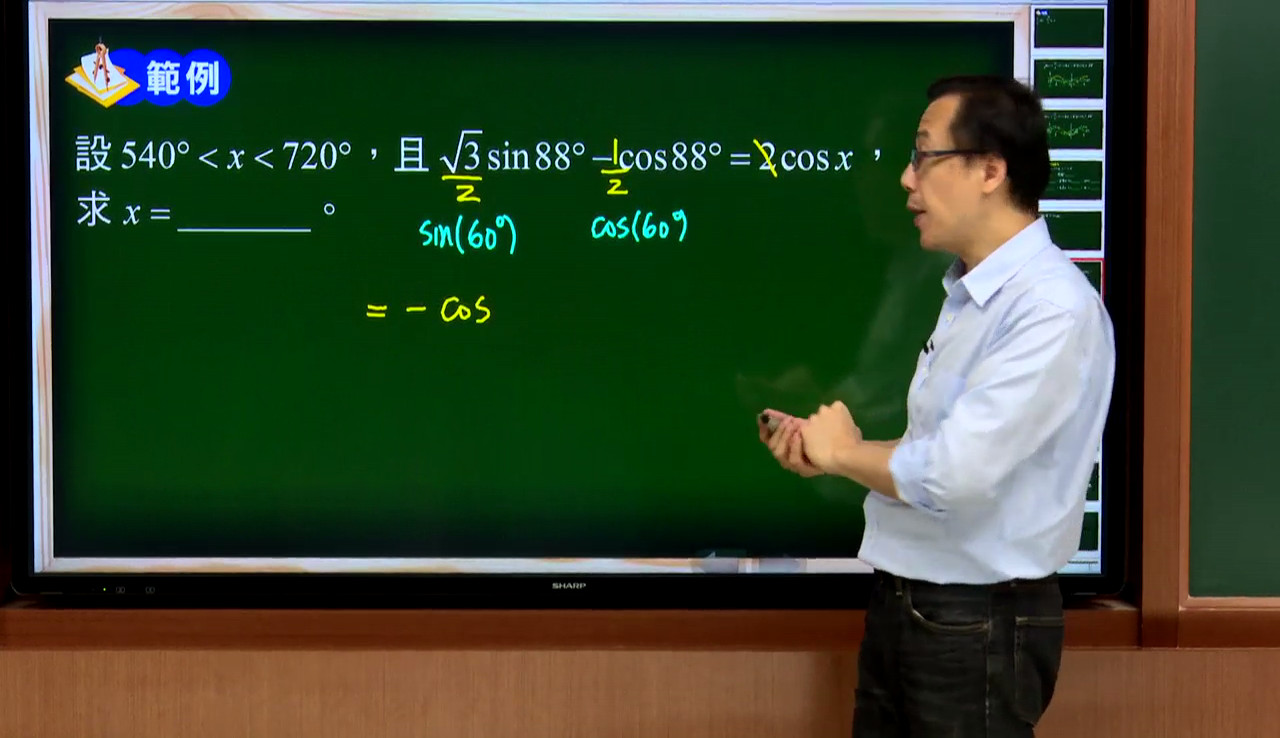 範例
設 540° < x < 720°，且 √3/2 sin88° − 1/2 cos88° = 2cosx，
求 x = ________ °
sin(60°) cos(60°)
= − cos
SHARP